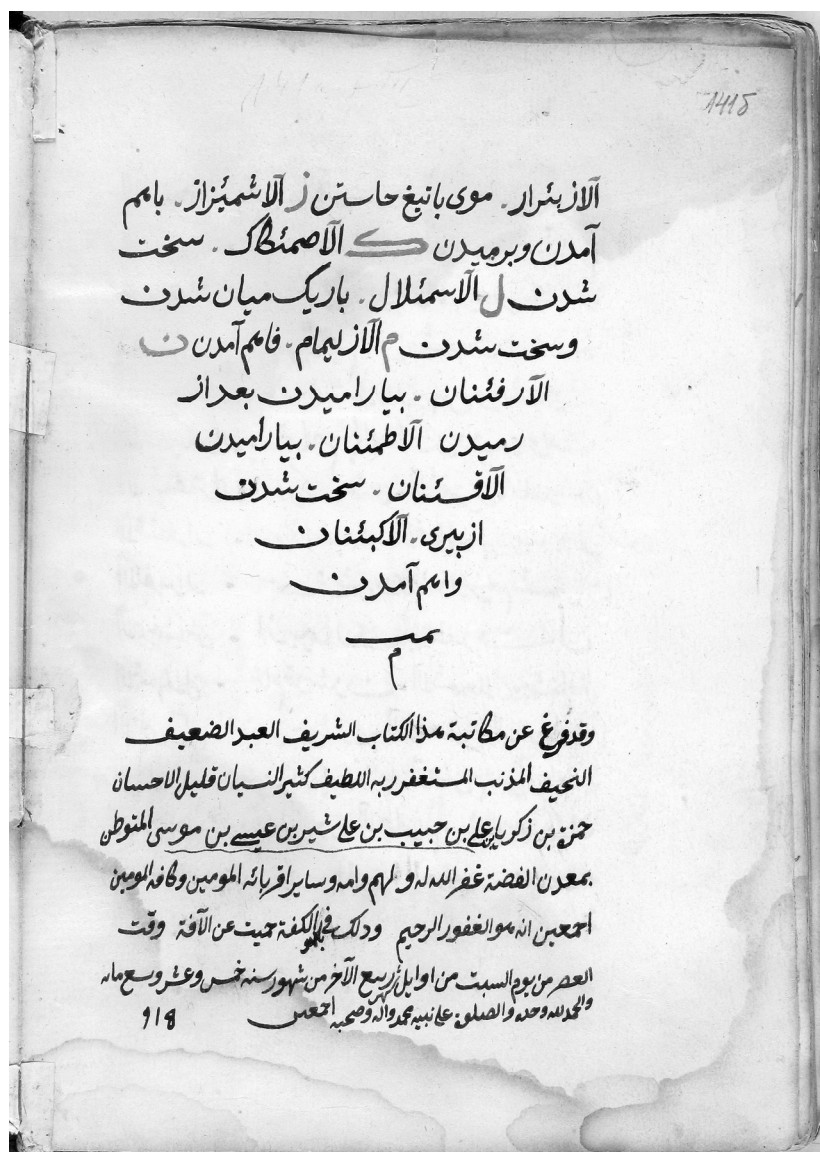 1415
الازبئرار . موی باتیغ خاستن ز الاشمئزاز . باهم
آمدن وبرمیدن ک الاصمئکاک . سخت
شدن ل الاسمئلال . باریک میان شدن
وسخت شدن م الازلیمام . فاهم آمدن ن
الارفئنان . بیارامیدن بعد از
رمیدن الاطمئنان . بیارامیدن
الاقسئنان . سخت شدن
از پیری . الاکبئنان
واهم آمدن
تمت
م
وقد فرغ عن مکاتبة هذا الکتاب الشریف العبد الضعیف
النحیف المذنب المستغفر ربه اللطیف کثیر النسیان قلیل الاحسان
حمزة بن زکریا بن علی بن حبیب بن علی شیر بن عیسی بن موسی المتوطن
بمعدن الفضة غفر الله له ولهم وامه وسایر اقربائه المومنین وکافة المومنین
اجمعین انه هو الغفور الرحیم وذلک فی الکفة حمیت عن الآفة وقت
العصر من یوم السبت من اوایل شهر ربیع الآخر من شهور سنه خمس وعشر وسبع مائه
والحمد لله وحده والصلوة علی نبیه محمد واله وصحبه اجمعین
918